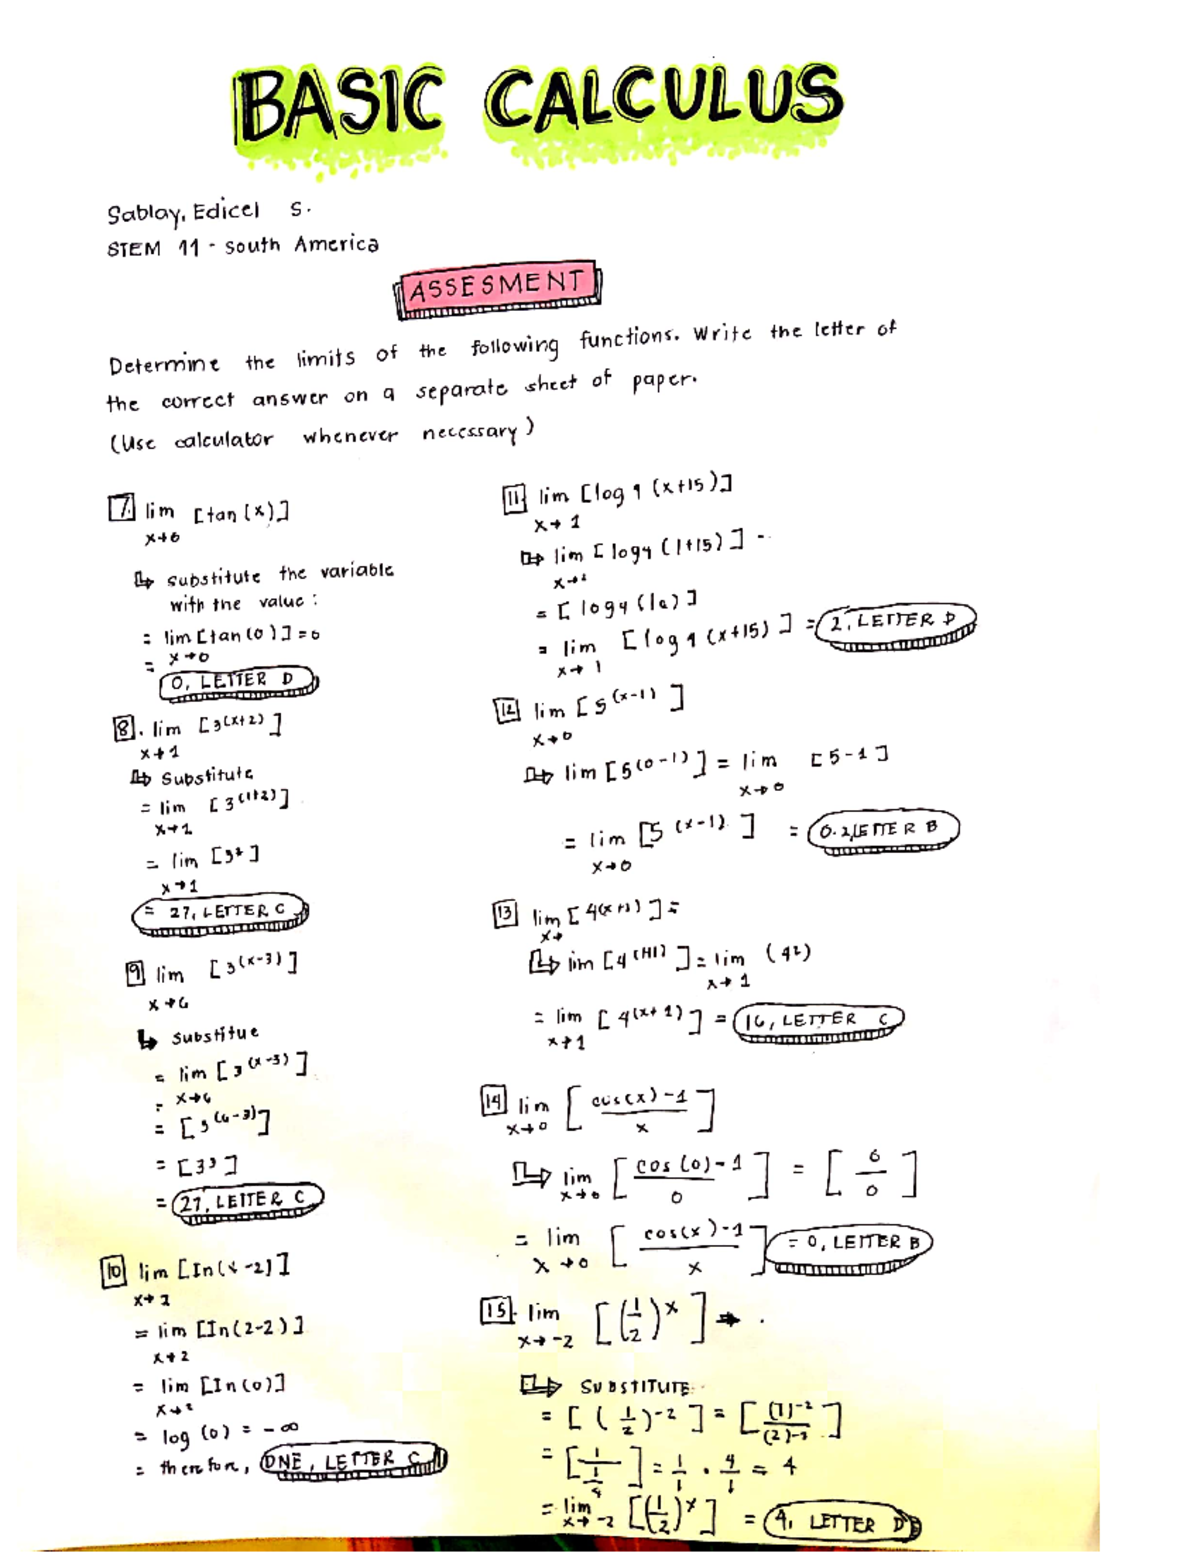 BASIC CALCULUS
Sablay, Edicel S.
STEM 11 - South America
ASSESMENT
Determine the limits of the following functions. Write the letter of
the correct answer on a separate sheet of paper.
(Use calculator whenever necessary)
7. lim [tan(x)]
x→0
↳ substitute the variable
with the value:
= lim [tan(0)] = 0
= x→0
0, LETTER D
8. lim [3^(x+2)]
x→1
↳ Substitute
= lim [3^(1+2)]
x→1
= lim [3³]
x→1
= 27, LETTER C
9 lim [3^(x-3)]
x→6
↳ Substitue
= lim [3^(x-3)]
= x→6
= [3^(6-3)]
= [3³]
= 27, LETTER C
10 lim [In(x-2)]
x→2
= lim [In(2-2)]
x→2
= lim [In(0)]
x→2
= log (0) = -∞
= therefore, DNE, LETTER C
11. lim [log 4 (x+15)]
x→1
↳ lim [log4 (1+15)]
x→1
= [log4(16)]
= lim [log 4 (x+15)] = 2, LETTER D
x→1
12 lim [5^(x-1)]
x→0
↳ lim [5^(0-1)] = lim [5-1]
x→0
= lim [5^(x-1)] = 0.2, LETTER B
x→0
13 lim [4^(x+1)] =
x→
↳ lim [4^(1+1)] = lim (4²)
x→1
= lim [4^(x+1)] = 16, LETTER C
x→1
14 lim [cos(x)-1 / x]
x→0
↳ lim [cos(0)-1 / 0] = [0/0]
x→0
= lim [cos(x)-1 / x] = 0, LETTER B
x→0
15. lim [(1/2)^x] →
x→-2
↳ SUBSTITUTE
= [(1/2)^-2] = [(1)^-2 / (2)^-2]
= [1 / 1/4] = 1/1 · 4/1 = 4
= lim [(1/2)^x] = 4, LETTER D
x→-2